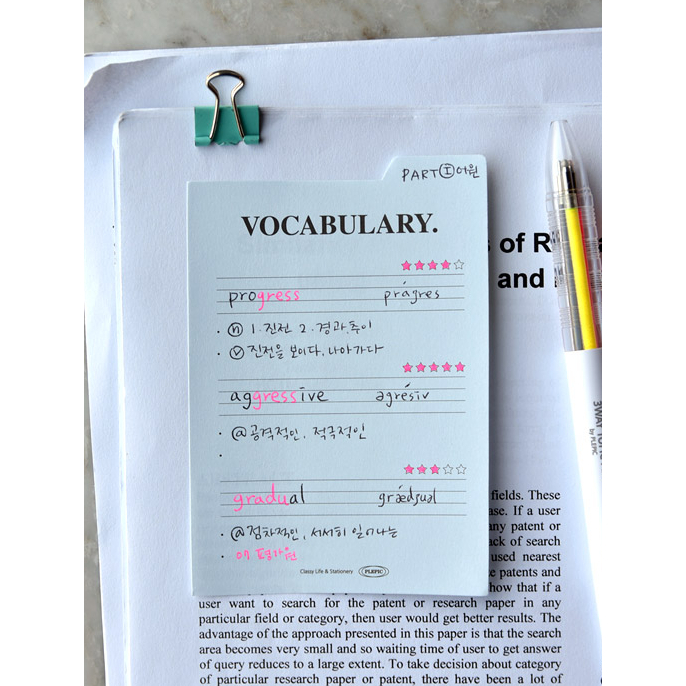 PART Ⅰ 어원
VOCABULARY.
progress prágres
· ⓝ 1. 진전 2. 경과, 추이
· ⓥ 진전을 보이다, 나아가다
aggressive əgrésiv
· ⓐ 공격적인, 적극적인
·
gradual grædʒuəl
· ⓐ 점차적인, 서서히 일어나는
·
Classy Life & Stationery PLEPIC
of R
and
3WAY
by PLEPIC
fields. These
ase. If a user
any patent or
ack of search
used nearest
e patents and
how that if a
user want to search for the patent or research paper in any
particular field or category, then user would get better results. The
advantage of the approach presented in this paper is that the search
area becomes very small and so waiting time of user to get answer
of query reduces to a large extent. To take decision about category
of particular research paper or patent, there have been a lot of